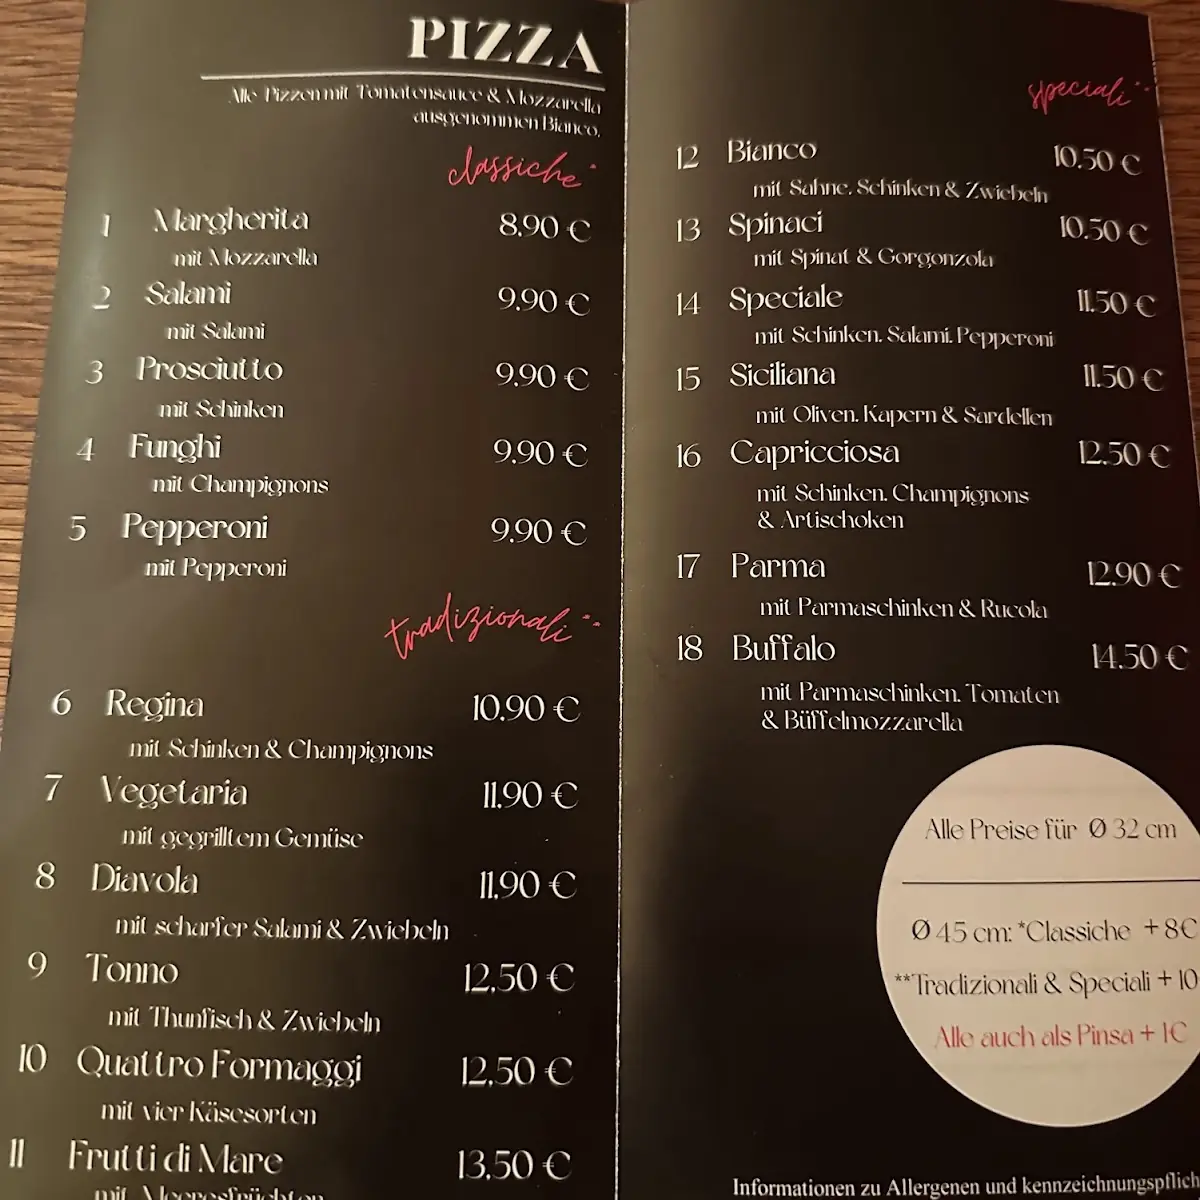 PIZZA
Alle Pizzen mit Tomatensauce & Mozzarella
ausgenommen Bianco.
classiche*
1 Margherita 8.90 €
mit Mozzarella
2 Salami 9.90 €
mit Salami
3 Prosciutto 9.90 €
mit Schinken
4 Funghi 9.90 €
mit Champignons
5 Pepperoni 9.90 €
mit Pepperoni
tradizionali**
6 Regina 10.90 €
mit Schinken & Champignons
7 Vegetaria 11.90 €
mit gegrilltem Gemüse
8 Diavola 11.90 €
mit scharfer Salami & Zwiebeln
9 Tonno 12.50 €
mit Thunfisch & Zwiebeln
10 Quattro Formaggi 12.50 €
mit vier Käsesorten
11 Frutti di Mare 13.50 €
mit Meeresfrüchten
speciali**
12 Bianco 10.50 €
mit Sahne, Schinken & Zwiebeln
13 Spinaci 10.50 €
mit Spinat & Gorgonzola
14 Speciale 11.50 €
mit Schinken, Salami, Pepperoni
15 Siciliana 11.50 €
mit Oliven, Kapern & Sardellen
16 Capricciosa 12.50 €
mit Schinken, Champignons
& Artischoken
17 Parma 12.90 €
mit Parmaschinken & Rucola
18 Buffalo 14.50 €
mit Parmaschinken, Tomaten
& Büffelmozzarella
Alle Preise für Ø 32 cm
Ø 45 cm: *Classiche + 8€
**Tradizionali & Speciali + 10
Alle auch als Pinsa + 1€
Informationen zu Allergenen und kennzeichnungspflich